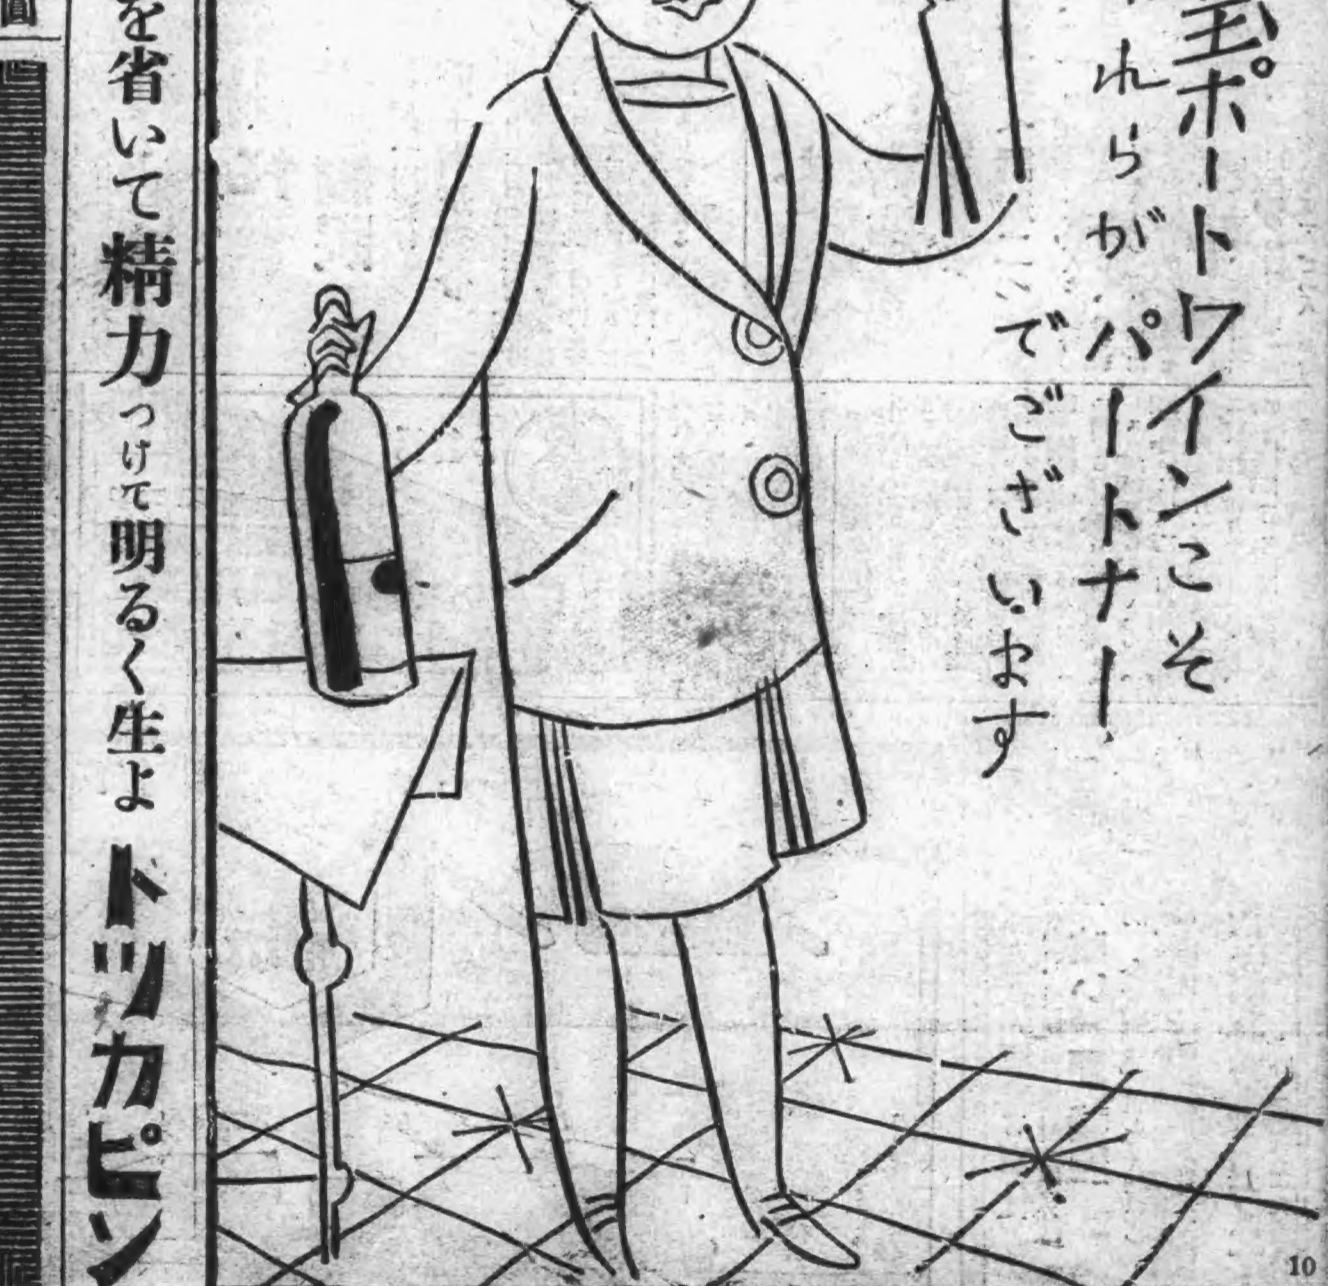 玉ポートワインこそ
れらがパートナー
でございます
を省いて精力つけて明るく生よ トツカピン
圓
10